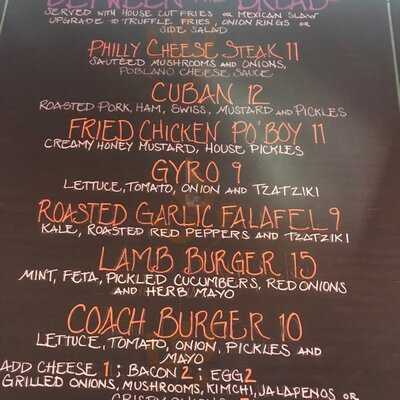 BETWEEN THE BREAD
SERVED WITH HOUSE CUT FRIES or MEXICAN SLAW
UPGRADE TO TRUFFLE FRIES, ONION RINGS or
SIDE SALAD
PHILLY CHEESE STEAK 11
SAUTEED MUSHROOMS AND ONIONS,
POBLANO CHEESE SAUCE
CUBAN 12
ROASTED PORK, HAM, SWISS, MUSTARD AND PICKLES
FRIED CHICKEN PO'BOY 11
CREAMY HONEY MUSTARD, HOUSE PICKLES
GYRO 9
LETTUCE, TOMATO, ONION AND TZATZIKI
ROASTED GARLIC FALAFEL 9
KALE, ROASTED RED PEPPERS AND TZATZIKI
LAMB BURGER 15
MINT, FETA, PICKLED CUCUMBERS, RED ONIONS
AND HERB MAYO
COACH BURGER 10
LETTUCE, TOMATO, ONION, PICKLES AND
MAYO
ADD CHEESE 1; BACON 2; EGG 2
GRILLED ONIONS, MUSHROOMS, KIMCHI, JALAPENOS OR
CRISPY ONIONS